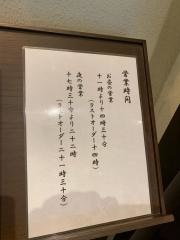 営業時間
お昼の営業
十一時より十四時三十分
(ラストオーダー十四時)
夜の営業
十七時三十分より二十二時
(ラストオーダー二十一時三十分)